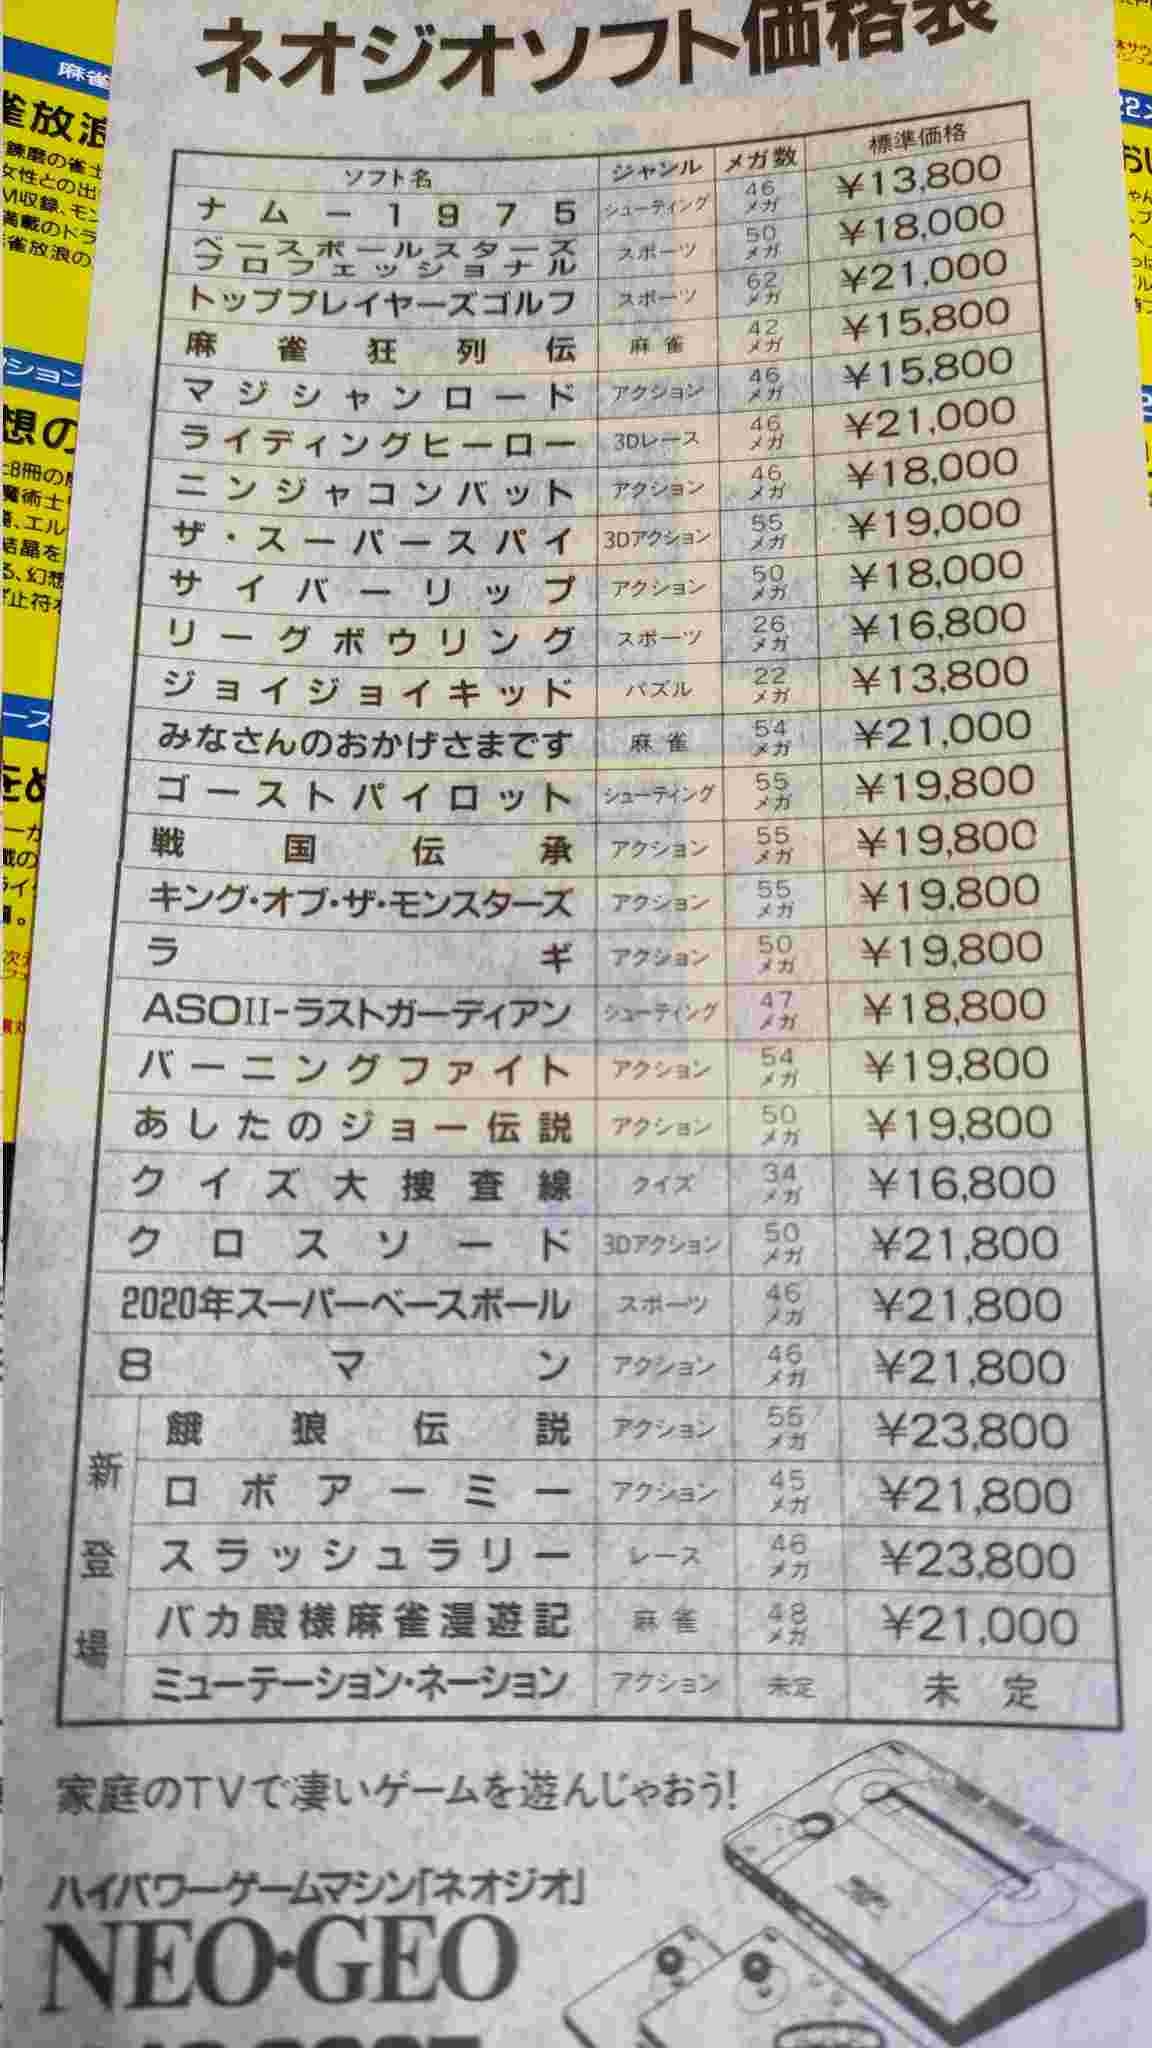 ネオジオソフト価格表
ソフト名 ジャンル メガ数 標準価格
ナム-1975 シューティング 46メガ ¥13,800
ベースボールスターズプロフェッショナル スポーツ 50メガ ¥18,000
トッププレイヤーズゴルフ スポーツ 62メガ ¥21,000
麻雀狂列伝 麻雀 42メガ ¥15,800
マジシャンロード アクション 46メガ ¥15,800
ライディングヒーロー 3Dレース 46メガ ¥21,000
ニンジャコンバット アクション 46メガ ¥18,000
ザ・スーパースパイ 3Dアクション 55メガ ¥19,000
サイバーリップ アクション 50メガ ¥18,000
リーグボウリング スポーツ 26メガ ¥16,800
ジョイジョイキッド パズル 22メガ ¥13,800
みなさんのおかげさまです 麻雀 54メガ ¥21,000
ゴーストパイロット シューティング 55メガ ¥19,800
戦国伝承 アクション 55メガ ¥19,800
キング・オブ・ザ・モンスターズ アクション 55メガ ¥19,800
ラギ アクション 50メガ ¥19,800
ASOII-ラストガーディアン シューティング 47メガ ¥18,800
バーニングファイト アクション 54メガ ¥19,800
あしたのジョー伝説 アクション 50メガ ¥19,800
クイズ大捜査線 クイズ 34メガ ¥16,800
クロスソード 3Dアクション 50メガ ¥21,800
2020年スーパーベースボール スポーツ 46メガ ¥21,800
8マン アクション 46メガ ¥21,800
新登場
餓狼伝説 アクション 55メガ ¥23,800
ロボアーミー アクション 45メガ ¥21,800
スラッシュラリー レース 46メガ ¥23,800
バカ殿様麻雀漫遊記 麻雀 48メガ ¥21,000
ミューテーション・ネーション アクション 未定 未定
家庭のTVで凄いゲームを遊んじゃおう!
ハイパワーゲームマシン「ネオジオ」
NEO・GEO